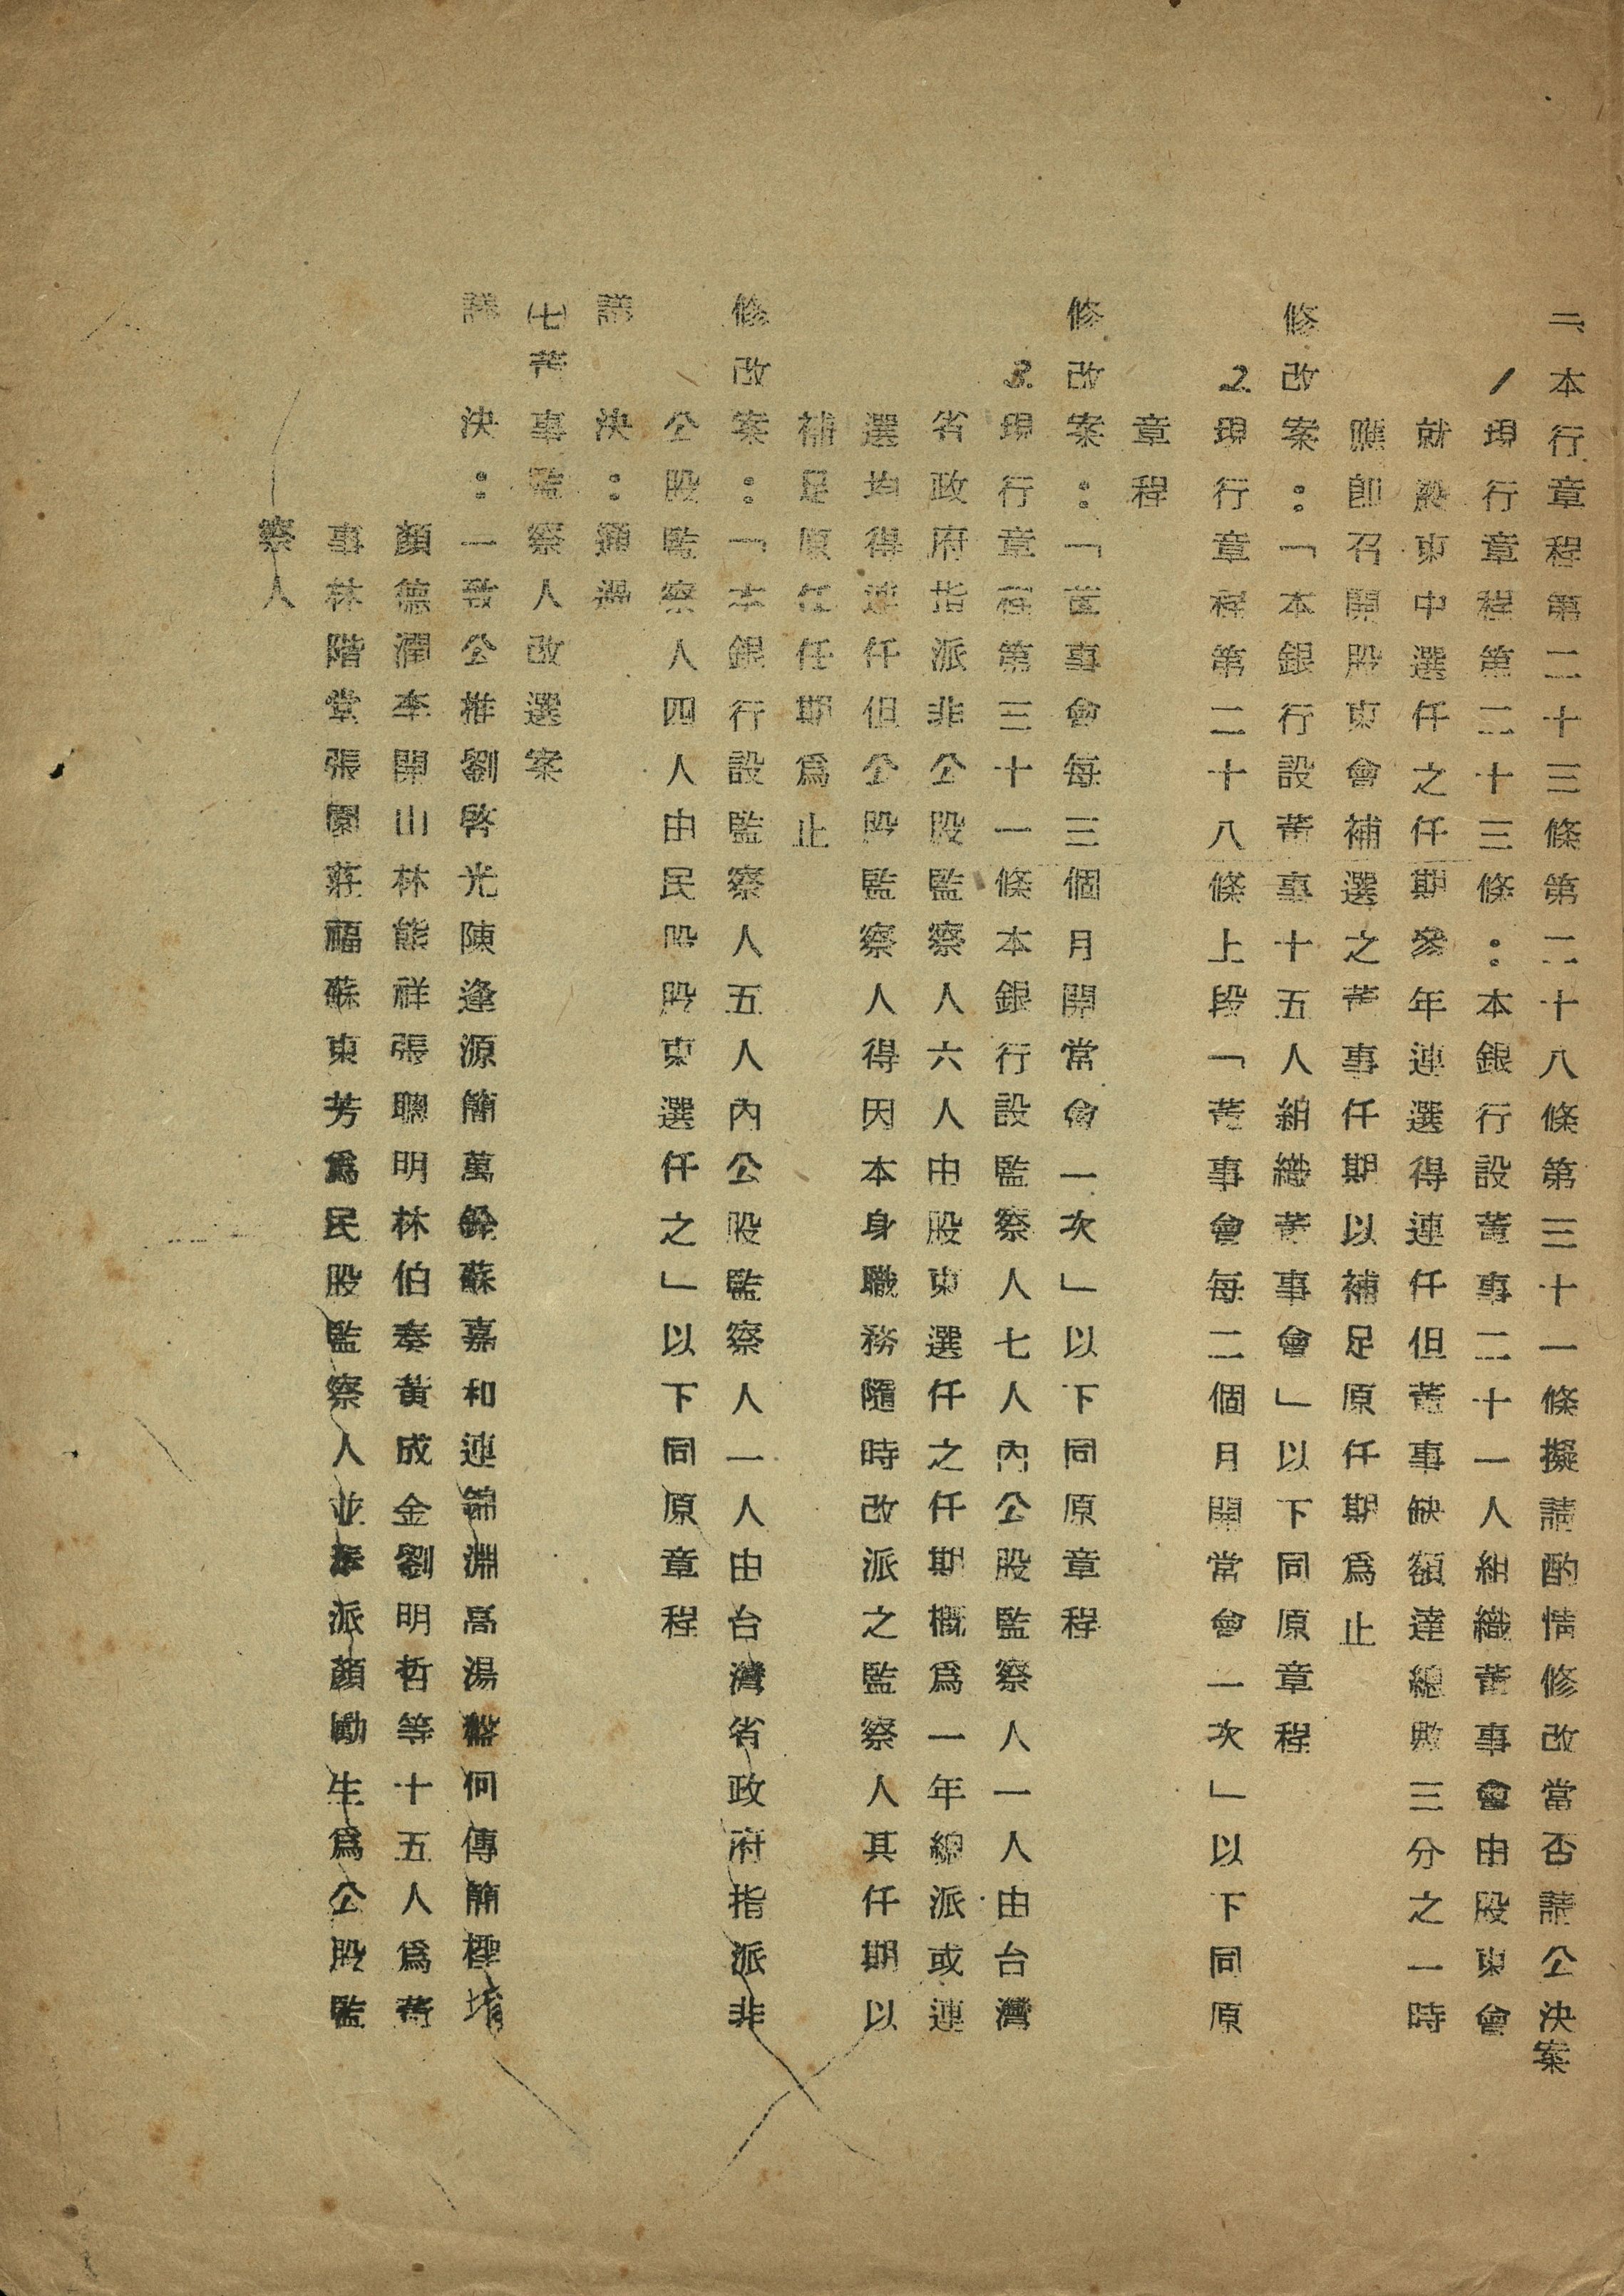 二、本行章程第二十三條第二十八條第三十一條擬請酌情修改當否請公決案
1 現行章程第二十三條：本銀行設董事二十一人組織董事會由股東會
就股東中選任之任期參年連選得連任但董事缺額達總數三分之一時
應即召開股東會補選之董事任期以補足原任期為止
修改案：「本銀行設董事十五人組織董事會」以下同原章程
2. 現行章程第二十八條上段「董事會每二個月開常會一次」以下同原
章程
修改案：「董事會每三個月開常會一次」以下同原章程
3. 現行章程第三十一條本銀行設監察人七人內公股監察人一人由台灣
省政府指派非公股監察人六人由股東選任之任期概為一年總派或連
選均得連任但公股監察人得因本身職務隨時改派之監察人其任期以
補足原任任期為止
修改案：「本銀行設監察人五人內公股監察人一人由台灣省政府指派非
公股監察人四人由民股股東選任之」以下同原章程
議決：通過
㈦董事監察人改選案
議決：一致公推劉啓光陳逢源簡萬銓蘇嘉和連錦淵高湯盤何傳簡檉堉
顏德潤李開山林熊祥張聰明林伯奏黃成金劉明哲等十五人為董
事林階堂張園莊福蘇東芳為民股監察人並奉派顏勵生為公股監
察人